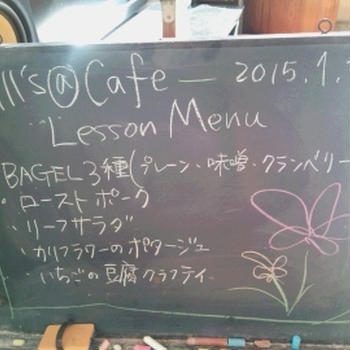 ll's@Cafe — 2015.1.
Lesson Menu
BAGEL3種(プレーン・味噌・クランベリー
・ローストポーク
・リーフサラダ
・カリフラワーのポタージュ
いちごの豆腐クラフティ